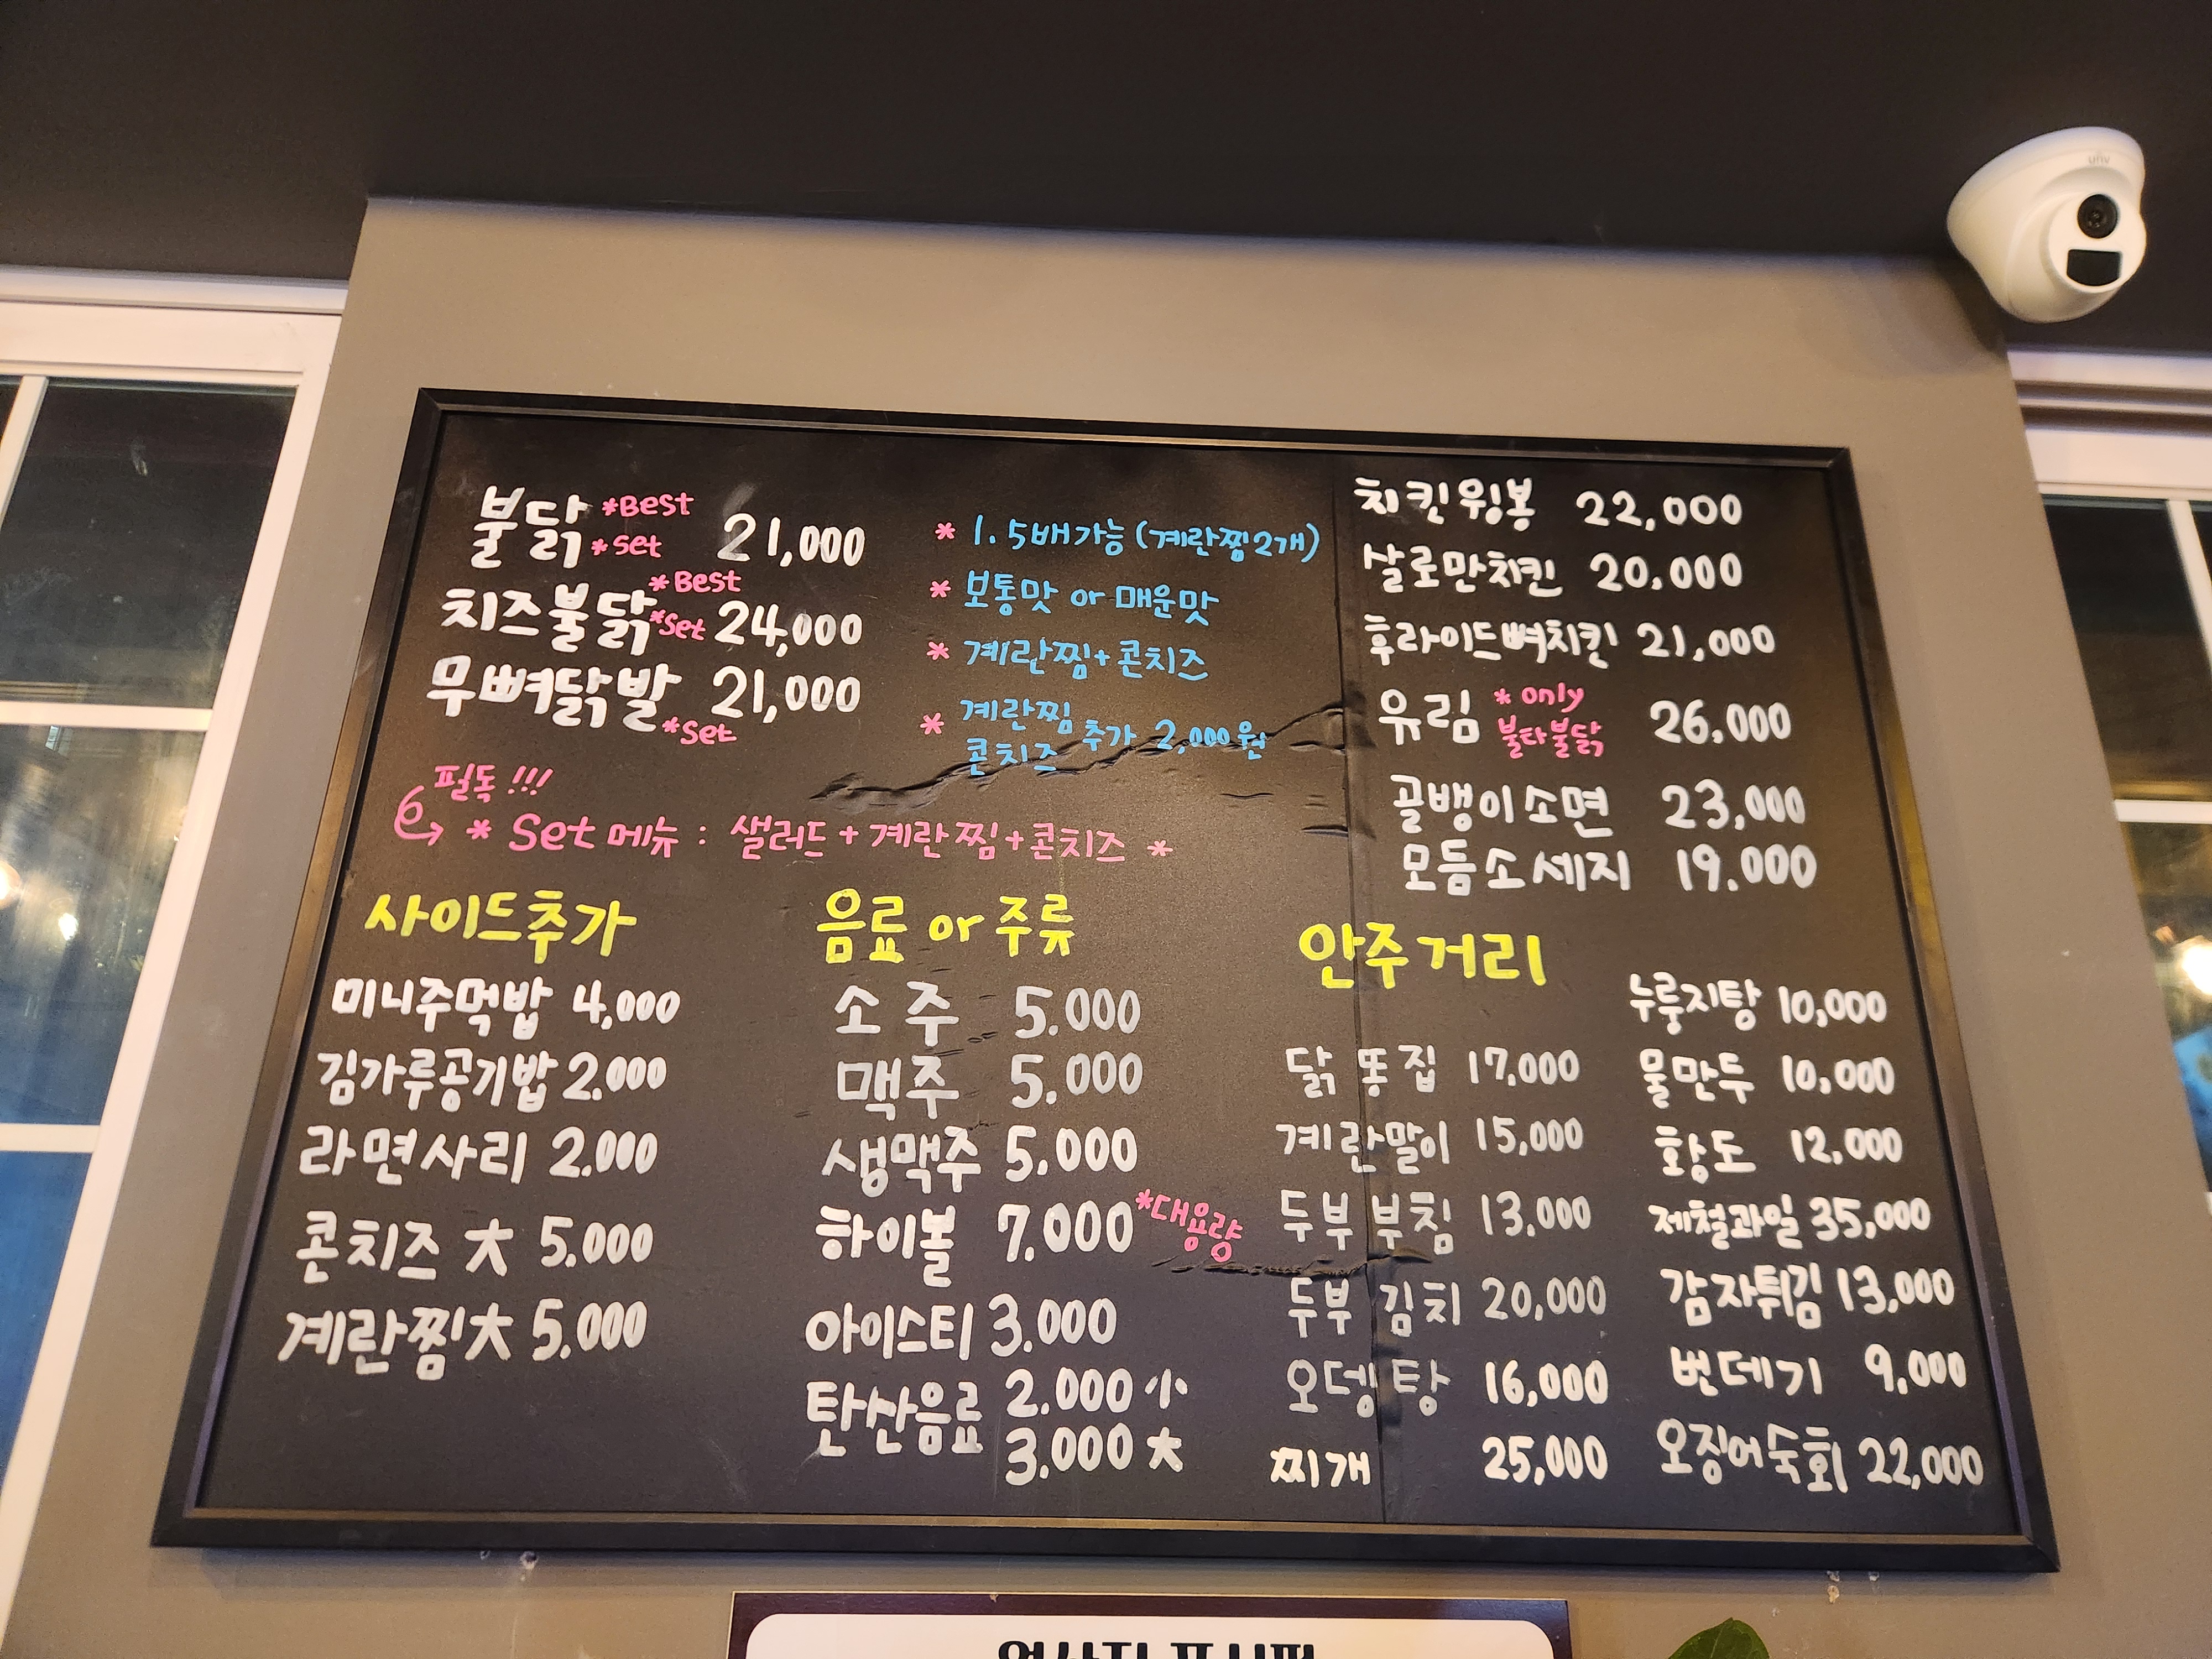 불닭 *Best *set 21,000
치즈불닭 *Best *set 24,000
무뼈닭발 *set 21,000
* 1.5배가능 (계란찜2개)
* 보통맛 or 매운맛
* 계란찜+콘치즈
* 계란찜 콘치즈 추가 2,000원
필독!!!
* Set 메뉴 : 샐러드+계란찜+콘치즈 *
치킨윙봉 22,000
살로만치킨 20,000
후라이드뼈치킨 21,000
유림 * only 불타불닭 26,000
골뱅이소면 23,000
모듬소세지 19.000
사이드추가
미니주먹밥 4,000
김가루공기밥 2.000
라면사리 2.000
콘치즈 大 5.000
계란찜大 5.000
음료 or 주류
소주 5.000
맥주 5.000
생맥주 5.000
하이볼 7.000 *대용량
아이스티 3.000
탄산음료 2.000 小
3.000 大
안주거리
닭똥집 17,000
계란말이 15,000
두부부침 13,000
두부김치 20,000
오뎅탕 16,000
찌개 25,000
누룽지탕 10,000
물만두 10,000
황도 12,000
제철과일 35,000
감자튀김 13,000
번데기 9,000
오징어숙회 22,000
unv